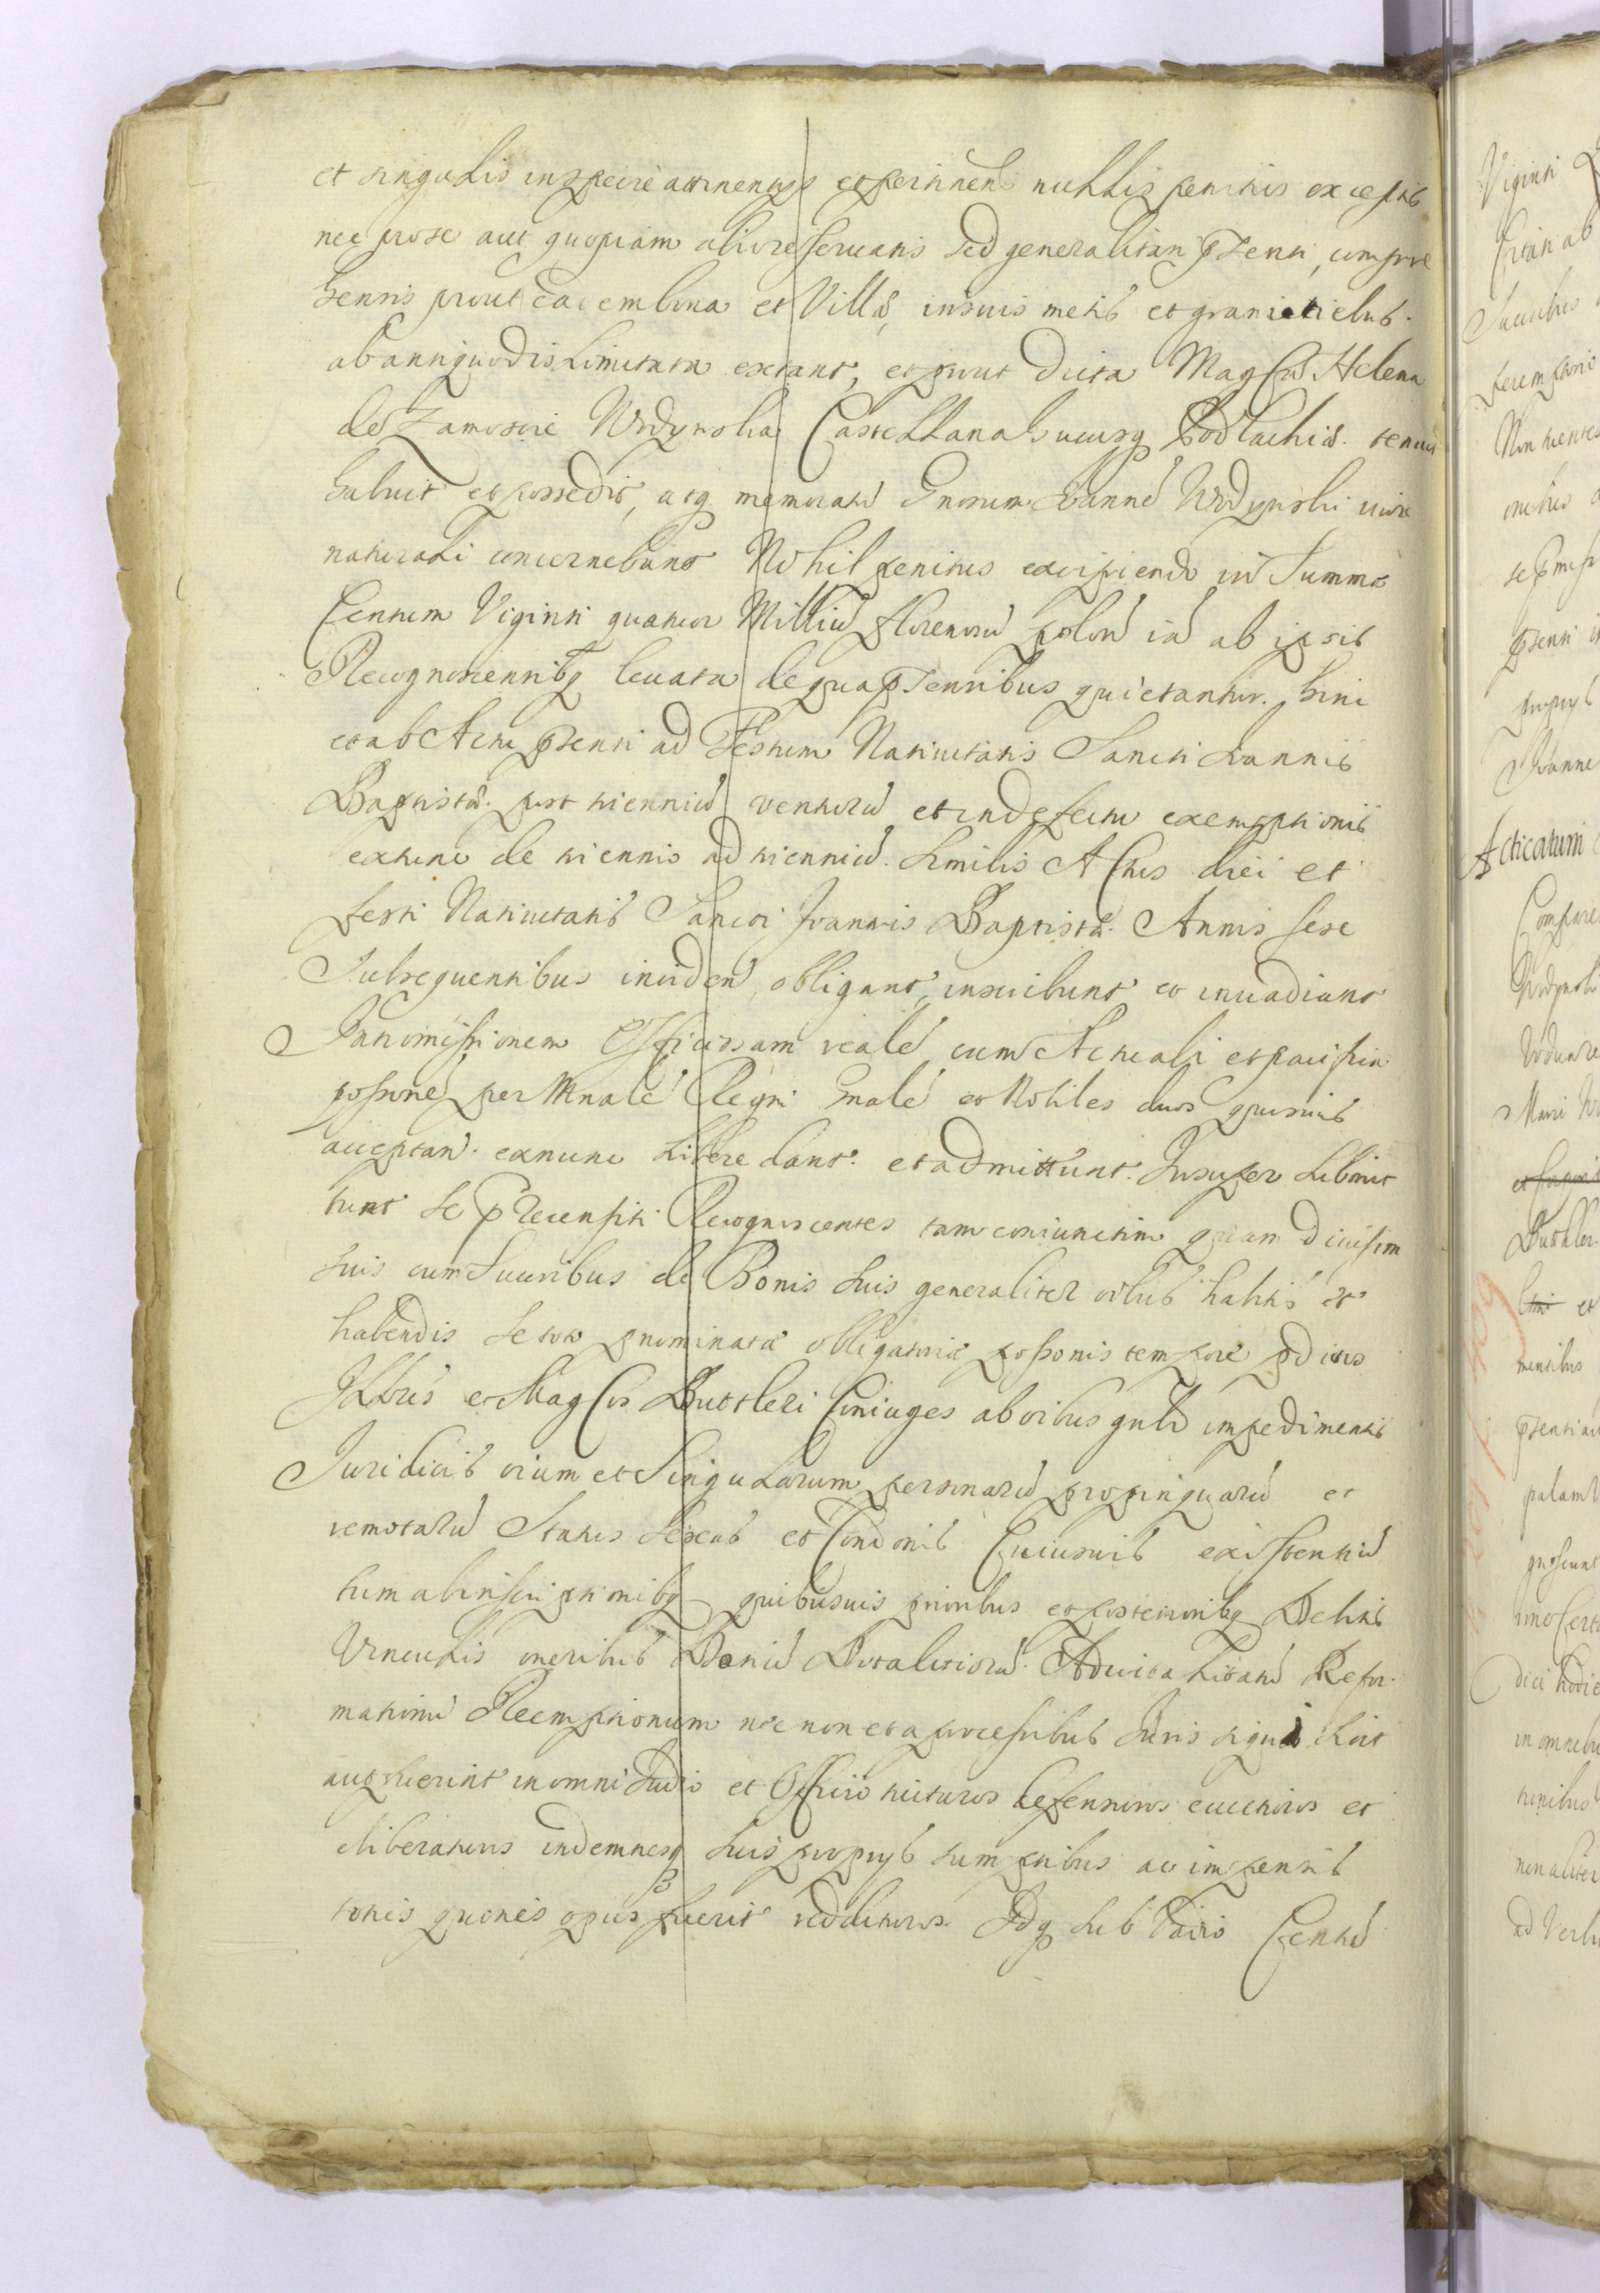 et singulis in specie attinentys et pertinen nullis penitus exceptis
nec pro se aut quopiam alio reservatis sed generalitati psenti compre
hensis prout eadem bona et Villæ, in suis metis et granicielus
ab antiquo dislimitata extant, et prout dicta Magca Helena
de Zamoscie Wodynska Castellana hucusq Podlachiæ tenuit
habuit et possedit, atq memoratu Gnosum Ioannē Wodynski iure
naturali concernebant Nihil penitus excipiendo in Summa
Centum Viginti quatuor Milliū florenorū polon iā ab ipsis
Recognoscentibq levata de qua psentibus quietantur. hinc
et ab Actu psenti ad Festum Nativitatis Sancti Ioannis
Baptistæ post triennium venturū et in defectu exemptionis
extunc de triennio ad trienniū similis Actus diei et
festi Nativitatis Sancti Ioannis Baptistæ Annis sese
Subsequentibus inviden obligant, inscribunt et invadiant
Intromissionem Officiosam realē cum Actuali et pacifica
possone per Mnalē Regni Gnalē et Nobiles duos quosvis
acceptan ex nunc libere dant et admittunt. Insuper submit
tunt se precensiti Recognoscentes tam coniunctim quam divisim
suis cum Succribus de Bonis suis generaliter oibus habitis et
habendis se toto pnominatæ obligatoriæ possonis tempore pdictos
Illres et Magcos Buttleri Coniuges ab oibus gnlr impedimentis
Iuridicis oium et Singularum personarū propinquarū et
remotarū Status Sexus et Condonis Cuiusvis existentiū
tum ab inscriptionibq quibusvis prioribus et posterioribq Debitis
Vinculis oneribus Bonis Dotalitiorū Advitalitatū Refor
mationū Reemptionum nec non et a processibus Iuris si qui sint
aut fuerint in omni Iudio et Officio tuituros defensuros evicturos et
eliberaturos indemnesq suis proprys sumptibus ac impensis
toties quoties opus fuerit reddituros. Idq sub Vadio Centū